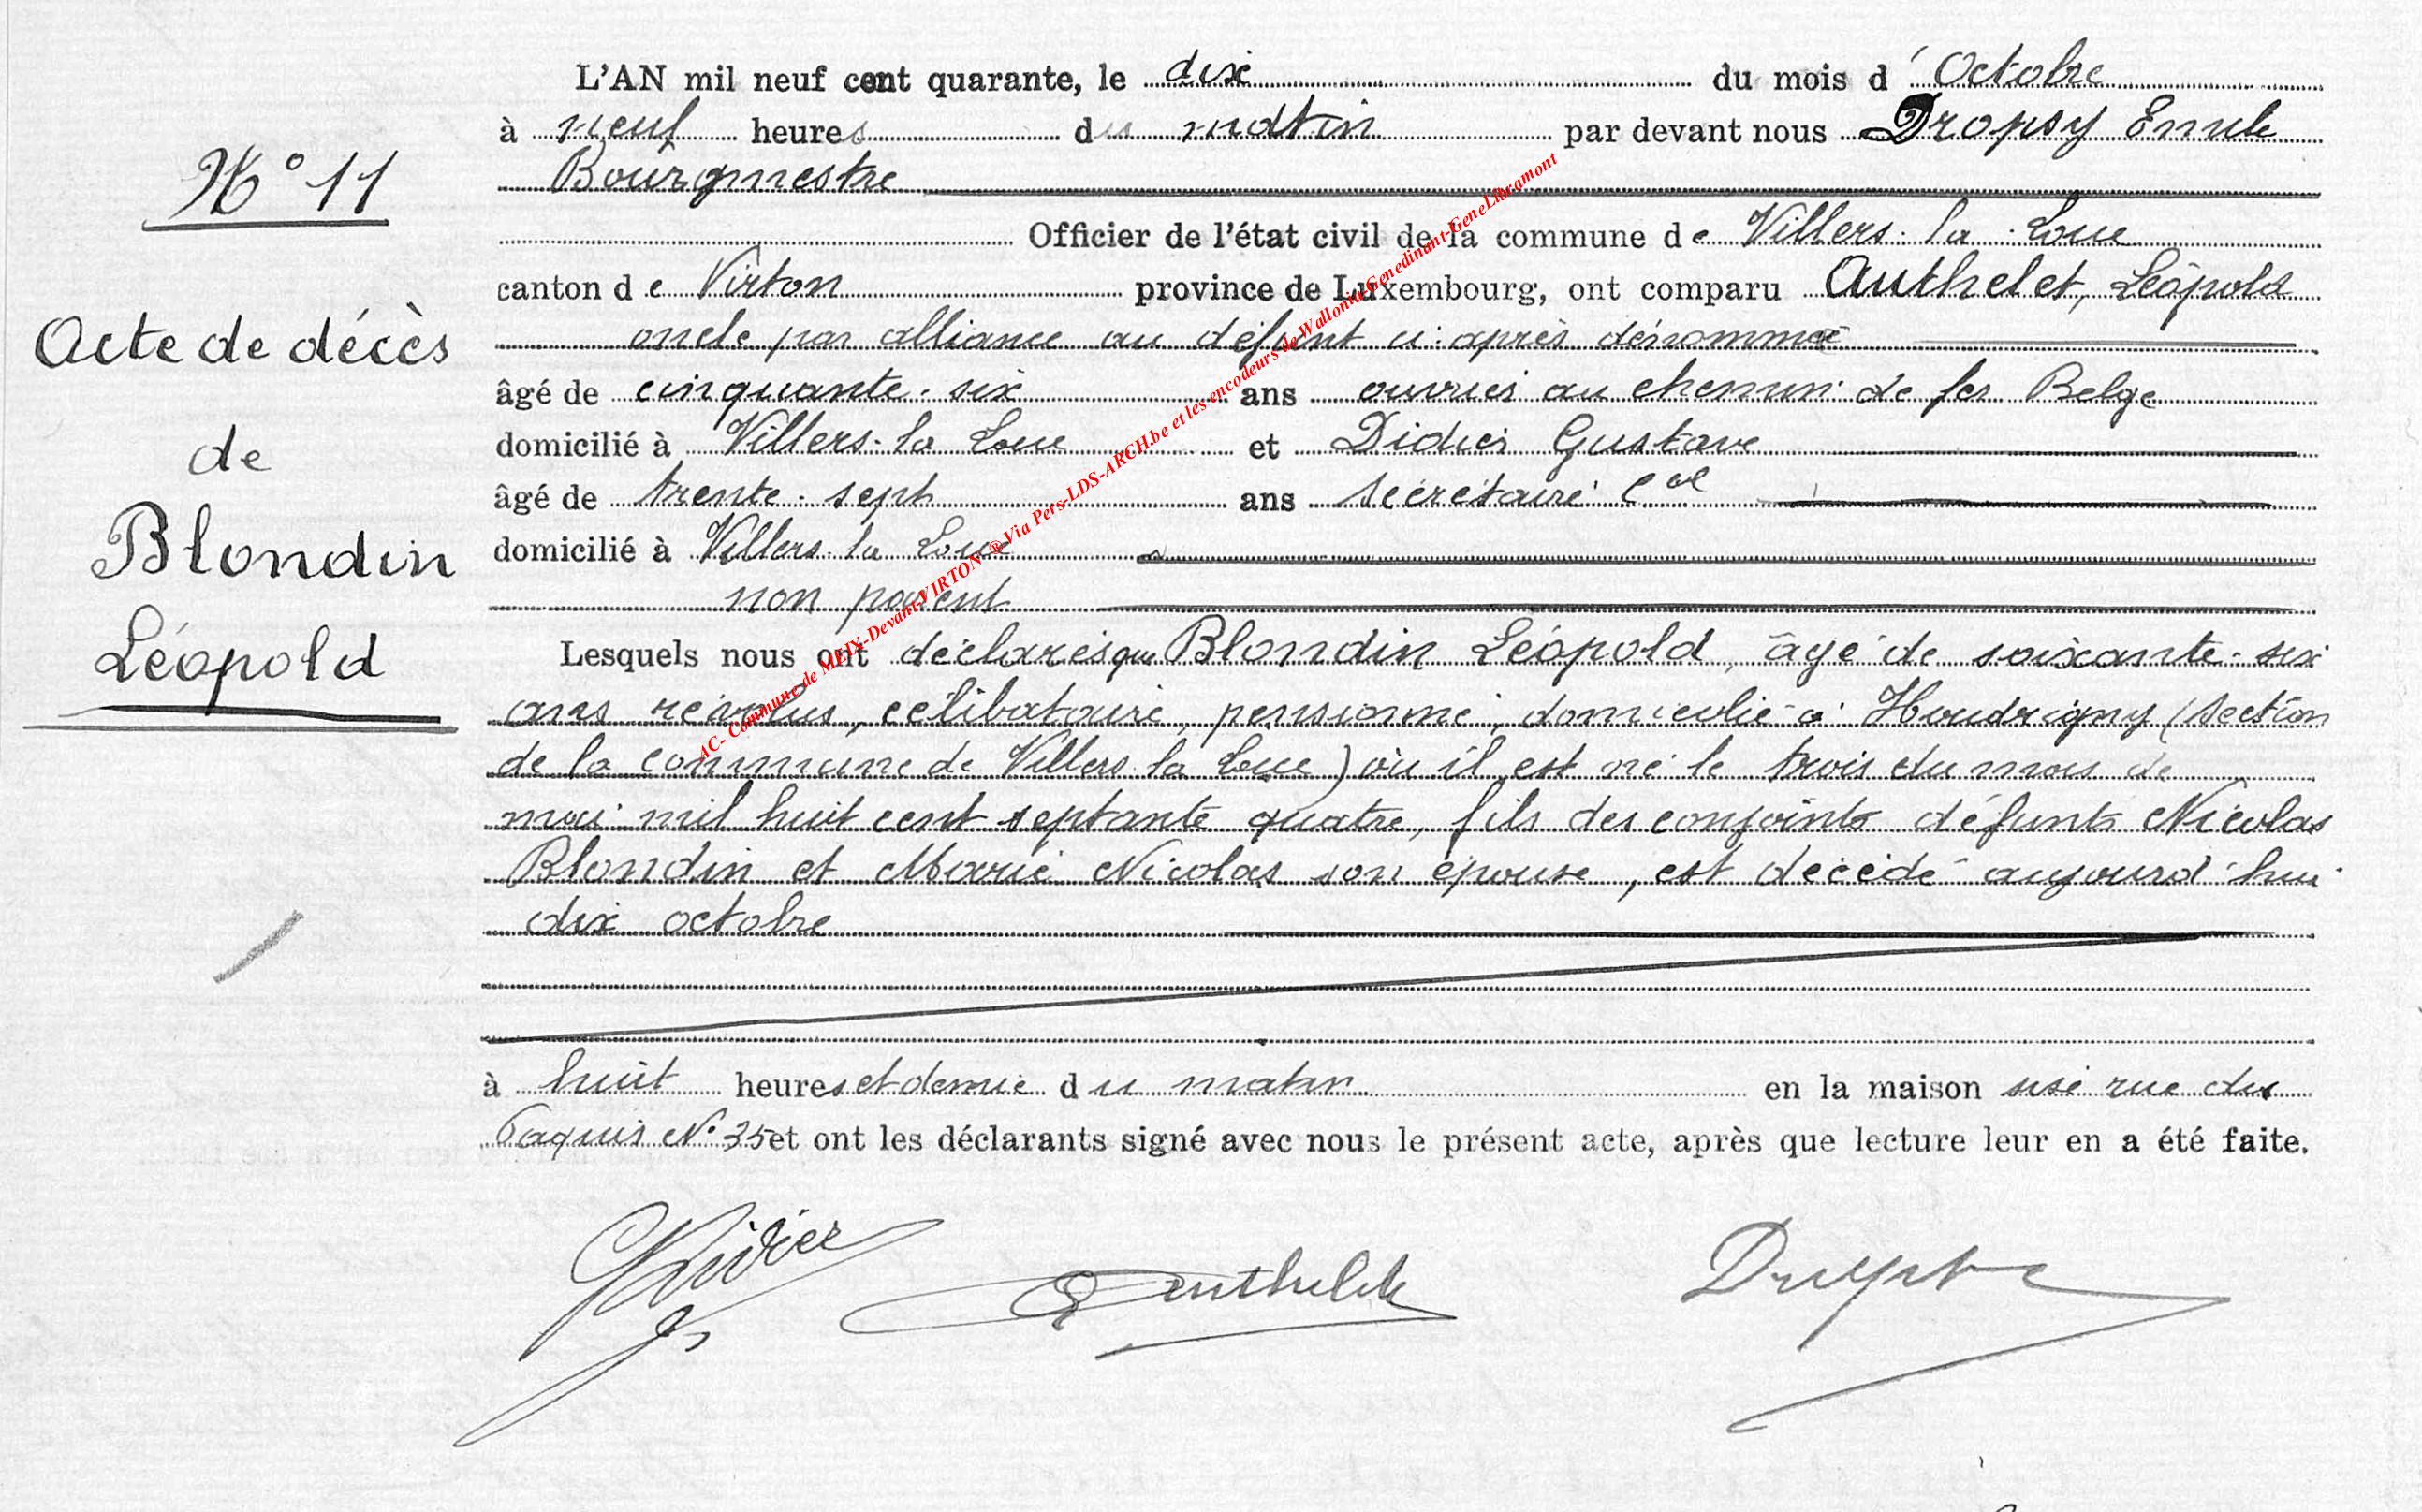 N° 11
Acte de décès
de
Blondin
Léopold
L'AN mil neuf cent quarante, le dix du mois d'Octobre
à neuf heures du matin par devant nous Dropsy Emile
Bourgmestre
Officier de l'état civil de la commune de Villers-la-Loue
canton de Virton province de Luxembourg, ont comparu Authelet, Léopold
oncle par alliance au défunt ci-après dénommé
âgé de cinquante-six ans ouvrier au chemin de fer Belge
domicilié à Villers-la Loue et Didier Gustave
âgé de trente-sept ans secrétaire Cal
domicilié à Villers-la Loue
non parent
Lesquels nous ont déclarés que Blondin Léopold, âgé de soixante-six
ans révolus, célibataire, pensionné, domicilié à Houdrigny (section
de la commune de Villers-la Loue) où il est né le trois du mois de
mai mil huit cent septante quatre, fils des conjoints défunts Nicolas
Blondin et Marie Nicolas son épouse, est décédé aujourd'hui
dix octobre
à huit heures et demie du matin en la maison sise rue du
Paquis N° 35 et ont les déclarants signé avec nous le présent acte, après que lecture leur en a été faite.
GDidier
Authelet
AC- Commune de MEIX-Devant-VIRTON ® Via Pers-LDS-ARCH.be et les encodeurs de Wallonia-Genedinant-GeneLibramont